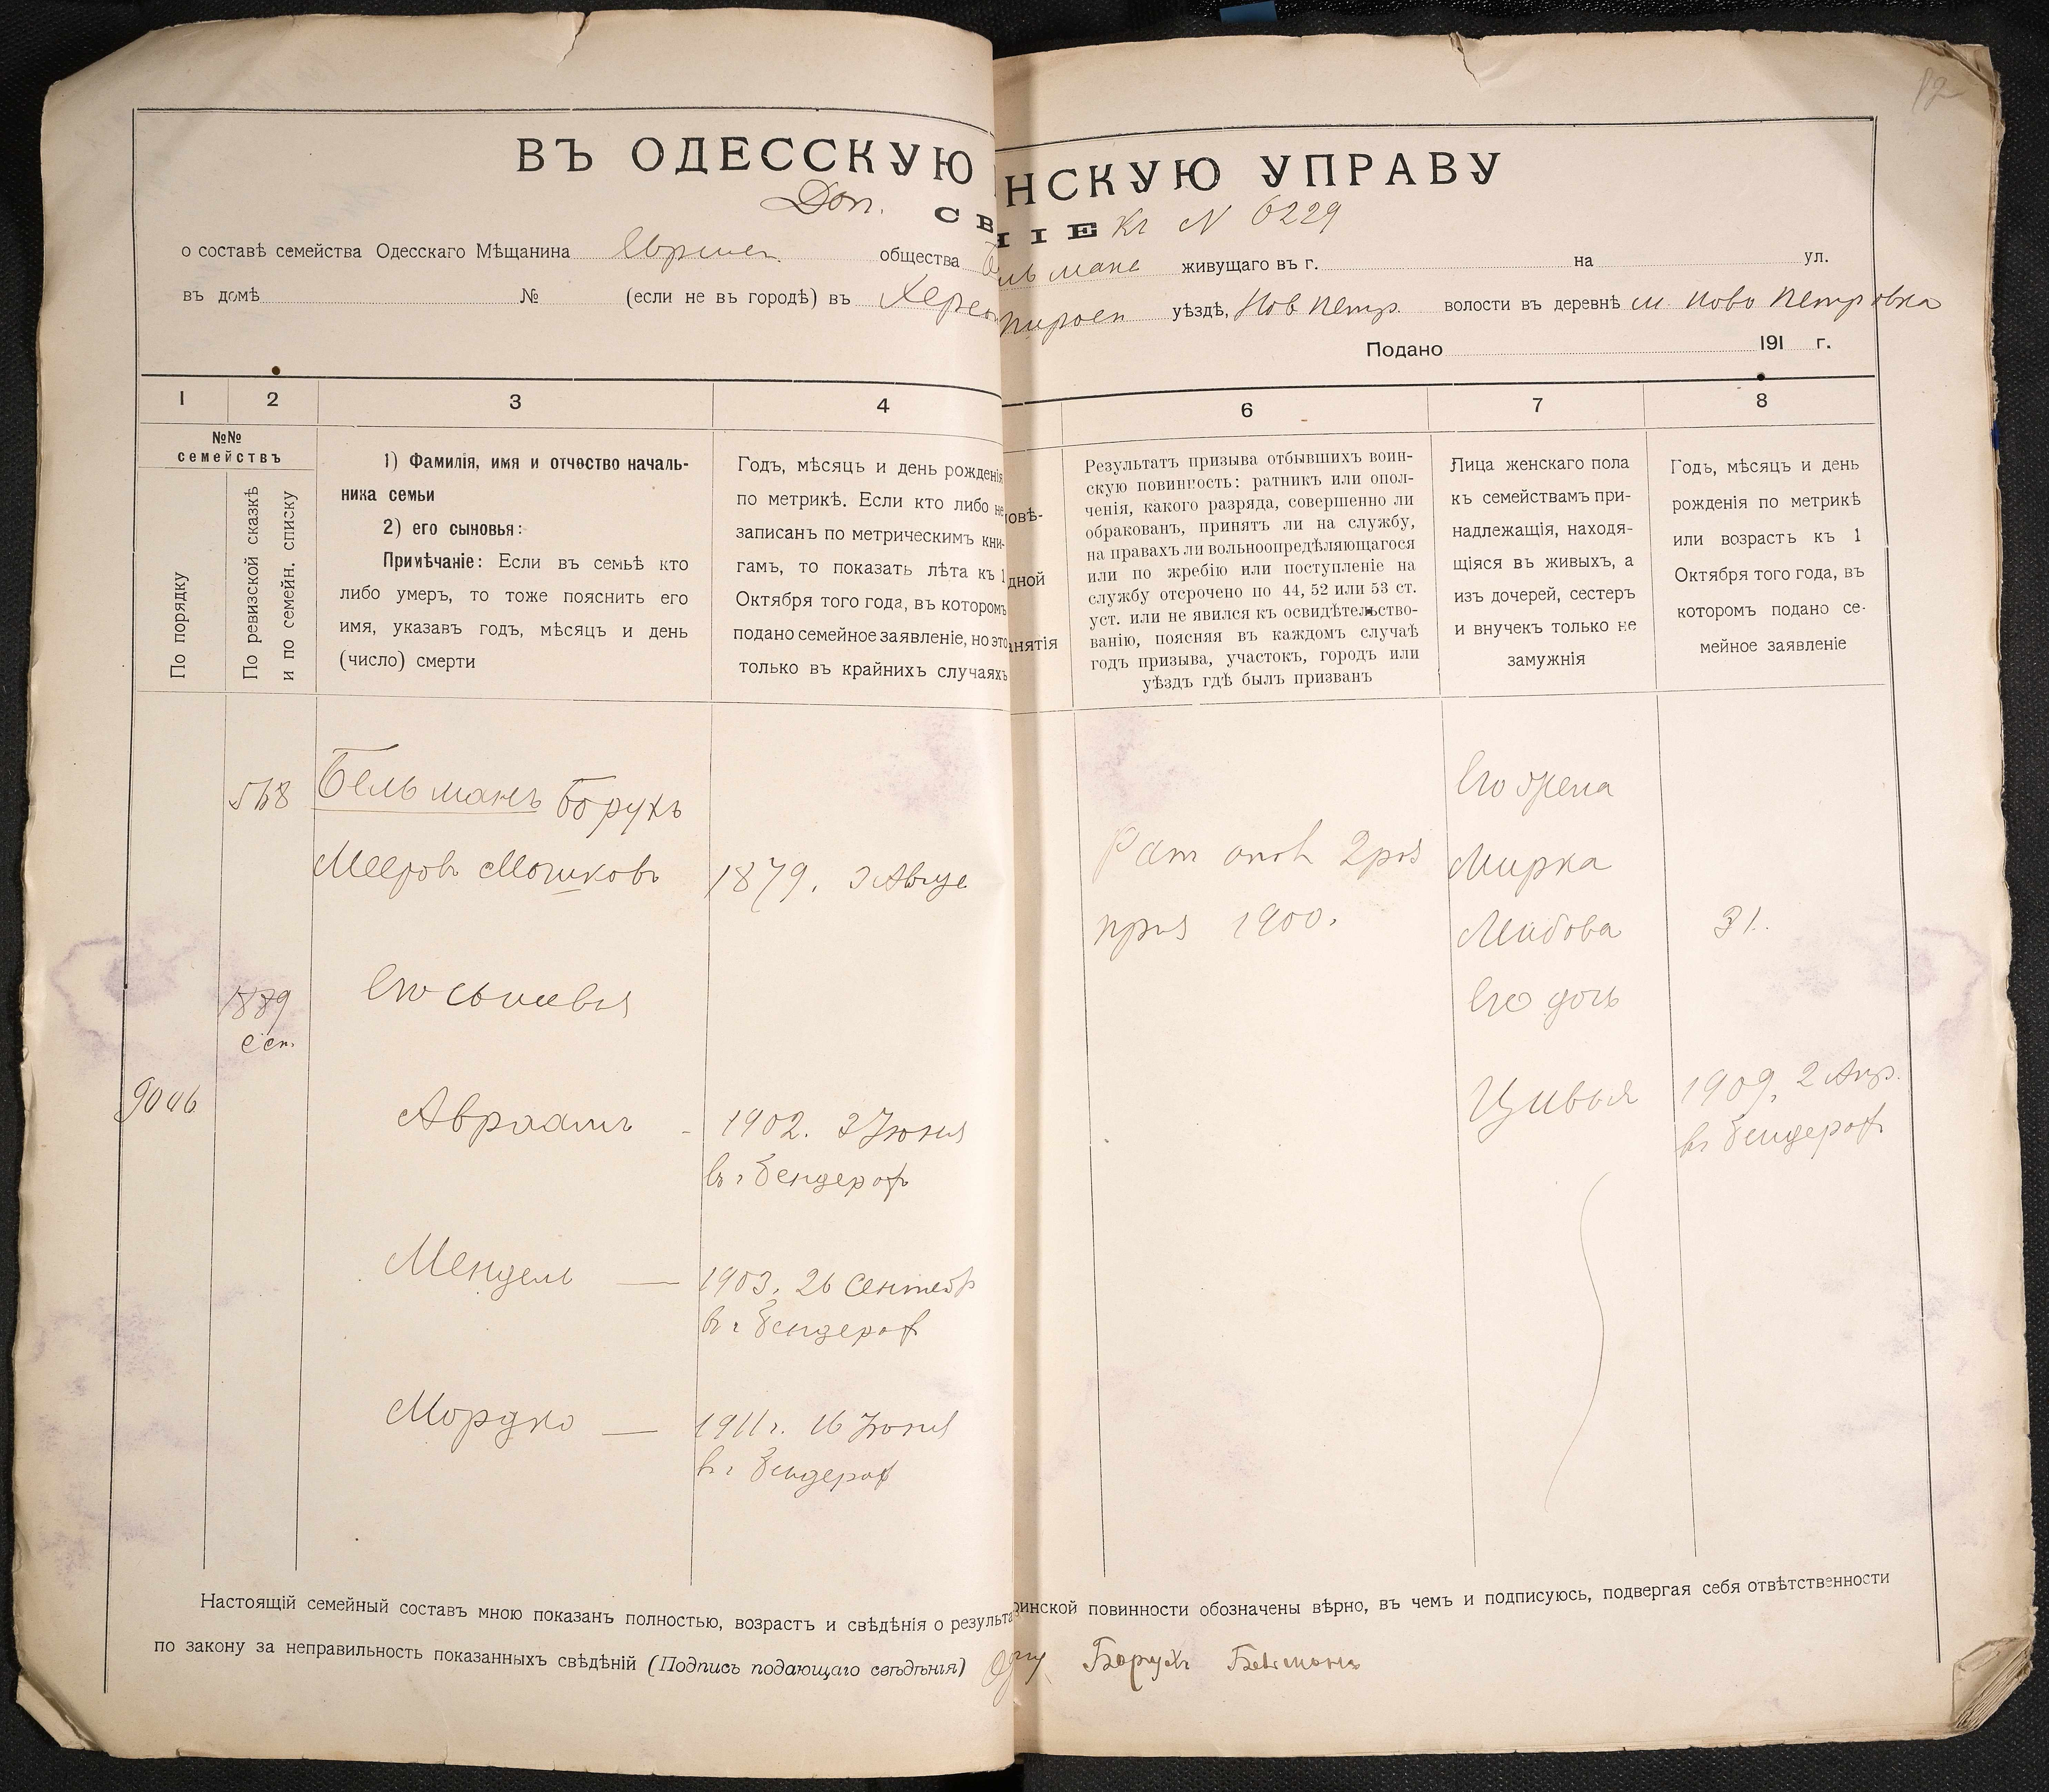 ВЪ ОДЕССКУЮ НСКУЮ УПРАВУ
Доп. СВ ІІЕ Кг N 6229
о составѣ семейства Одесскаго Мѣщанина общества живущаго въ г. на ул.
въ домѣ № (если не въ городѣ) въ уѣздѣ, Нов Петр. волости въ деревнѣ м. Ново Петровка
Подано 191 г.
1 2 3 4 6 7 8
№№
семействъ
По порядку
По ревизской сказкѣ
и по семейн. списку
1) Фамилія, имя и отчество началь-
ника семьи
2) его сыновья:
Примѣчаніе: Если въ семьѣ кто
либо умеръ, то тоже пояснить его
имя, указавъ годъ, мѣсяцъ и день
(число) смерти
Годъ, мѣсяцъ и день рожденія
по метрикѣ. Если кто либо не
записанъ по метрическимъ кни-
гамъ, то показать лѣта къ 1
Октября того года, въ которомъ
подано семейное заявленіе, но это
только въ крайнихъ случаяхъ
овѣ-
дной
анятія
Результатъ призыва отбывшихъ воин-
скую повинность: ратникъ или опол-
ченія, какого разряда, совершенно ли
обракованъ, принятъ ли на службу,
на правахъ ли вольноопредѣляющагося
или по жребію или поступленіе на
службу отсрочено по 44, 52 или 53 ст.
уст. или не явился къ освидѣтельство-
ванію, поясняя въ каждомъ случаѣ
годъ призыва, участокъ, городъ или
уѣздъ гдѣ былъ призванъ
Лица женскаго пола
къ семействамъ при-
надлежащія, находя-
щіяся въ живыхъ, а
изъ дочерей, сестеръ
и внучекъ только не
замужнія
Годъ, мѣсяцъ и день
рожденія по метрикѣ
или возрастъ къ 1
Октября того года, въ
которомъ подано се-
мейное заявленіе
568 Бельманъ Борухъ
Мееровъ Мошковъ 1879. 3 Авгус
Рат опол 2 раз
приз 1900.
Его жена
Мирка
Лейбова 31.
1889
Сен.
Его сыновья
Его дочь
Авраамъ - 1902. 2 Іюня
въ г Бендерах
Цивья 1909. 2 Апр.
въ Бендерах
Мендель — 1903. 26 Сентябр
въ г Бендерах
Мордко — 1911 г. 16 Іюня
въ г Бендерах
Настоящій семейный составъ мною показанъ полностью, возрастъ и свѣдѣнія о результа ринской повинности обозначены вѣрно, въ чемъ и подписуюсь, подвергая себя отвѣтственности
по закону за неправильность показанныхъ свѣдѣній (Подпись подающаго свѣдѣнія) Борухъ Бельманъ